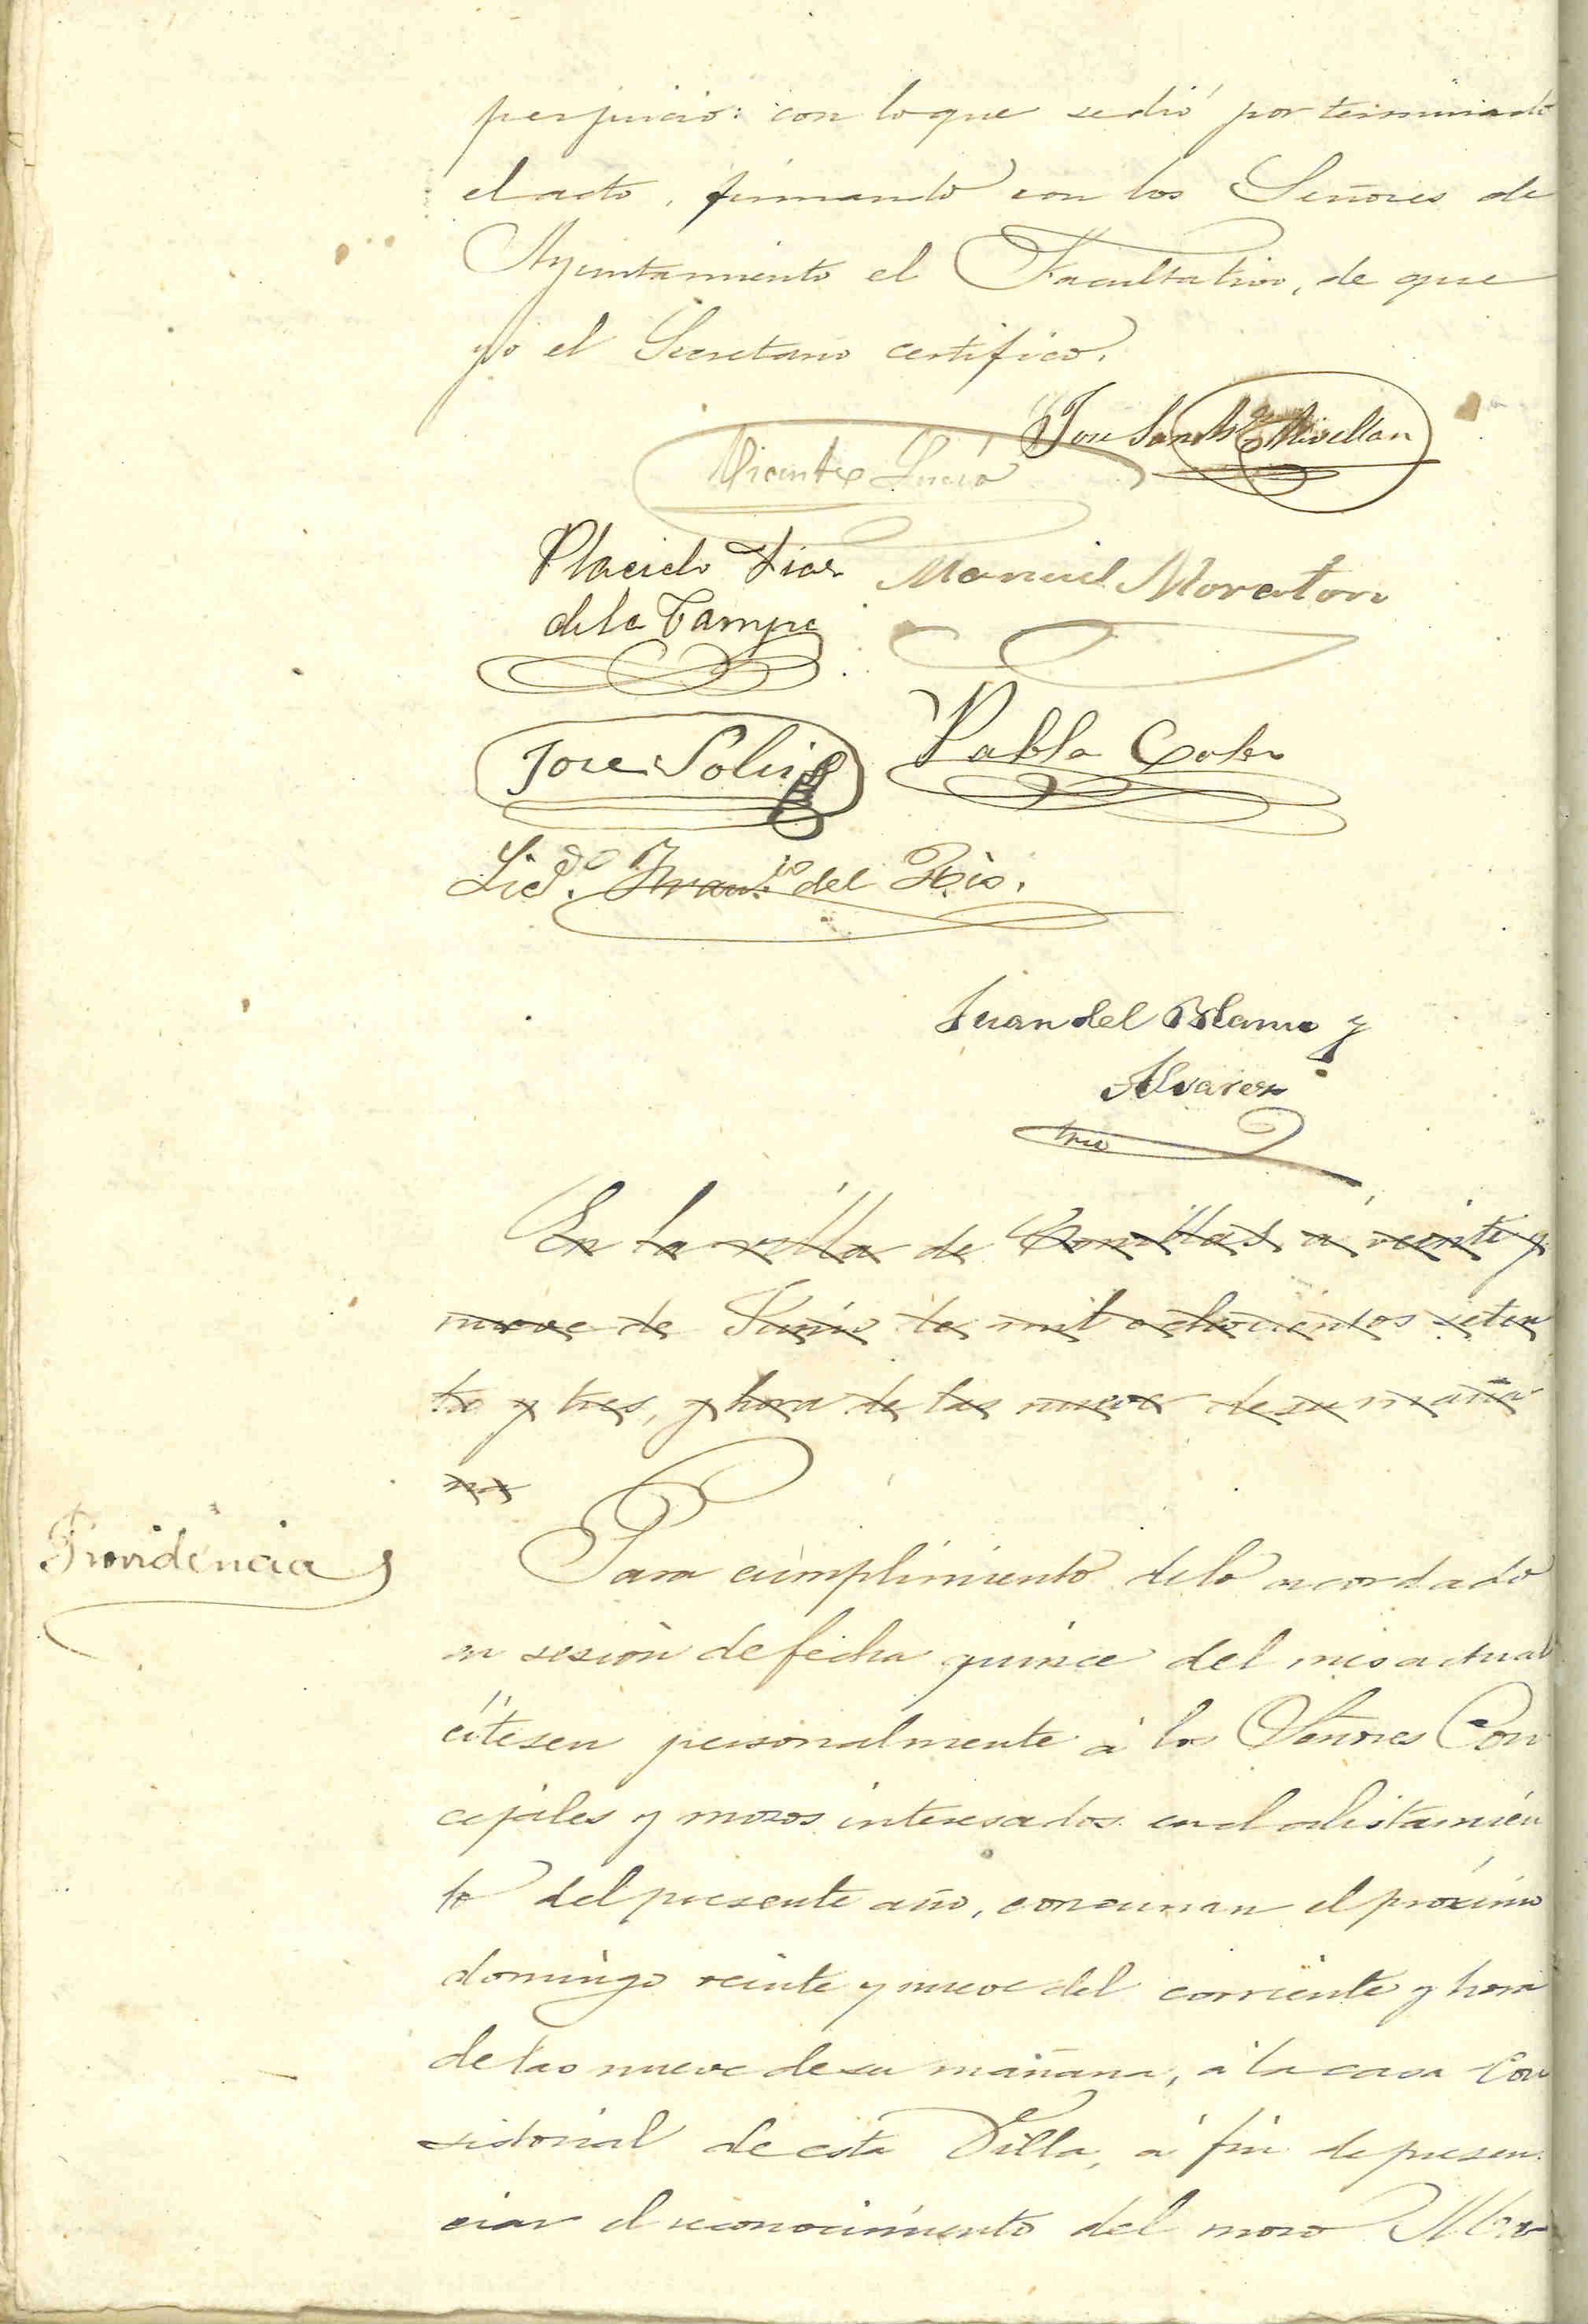 perjuicio: con lo que se dió por terminado
el acto, firmando con los Señores de
Ayuntamiento el Facultativo, de que
yo el Secretario certifico.
Jose Sanch
Vicente Lucio
Placido Diaz Manuel Moraton
de la Campa
Jose Solis Pablo
Licdo. Franco. del Rio.
Juan del Blanco y
Alvarez
Srio
En la villa de Comillas á veinte y
nueve de Junio de mil ochocientos seten
ta y tres, y hora de las nueve de su maña
na
Providencia
Para cumplimiento de lo acordado
en sesión de fecha quince del mes actual
cítesen personalmente á los Señores Con
cejales y mozos interesados en el alistamien
to del presente año, concurran el próximo
domingo veinte y nueve del corriente y hora
de las nueve de su mañana, á la casa Con
sistorial de esta Villa, á fin de presen
ciar el reconocimiento del mozo